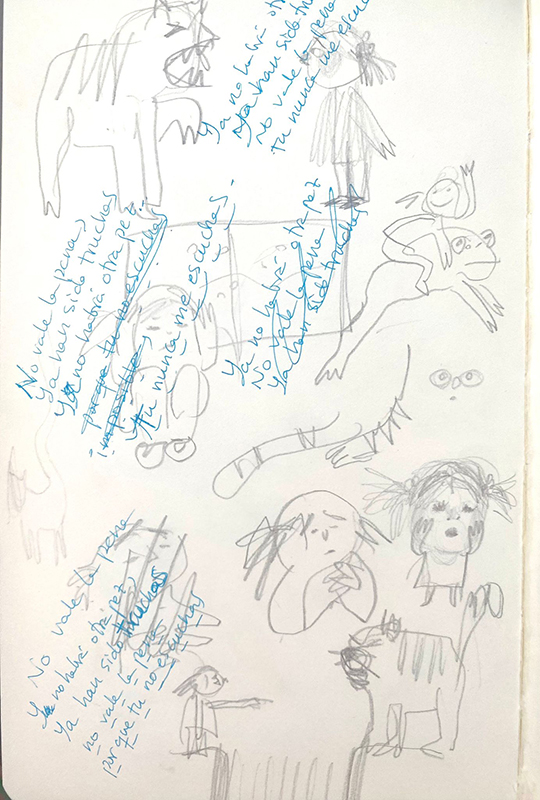 Ya no habrá
Ya han sido
No vale la pena
tu nunca me
No vale la pena,
Ya han sido truchas
Ya no habrá otra pez.
porque tu no escuchas
imposible,
Y tu nunca me escuchas.
Ya no habrá otra pez
No vale la pena
Ya han sido truchas
No vale la pena
Ya no habrá otra pez,
Ya han sido truchas
no vale la pena
porque tu no escuchas